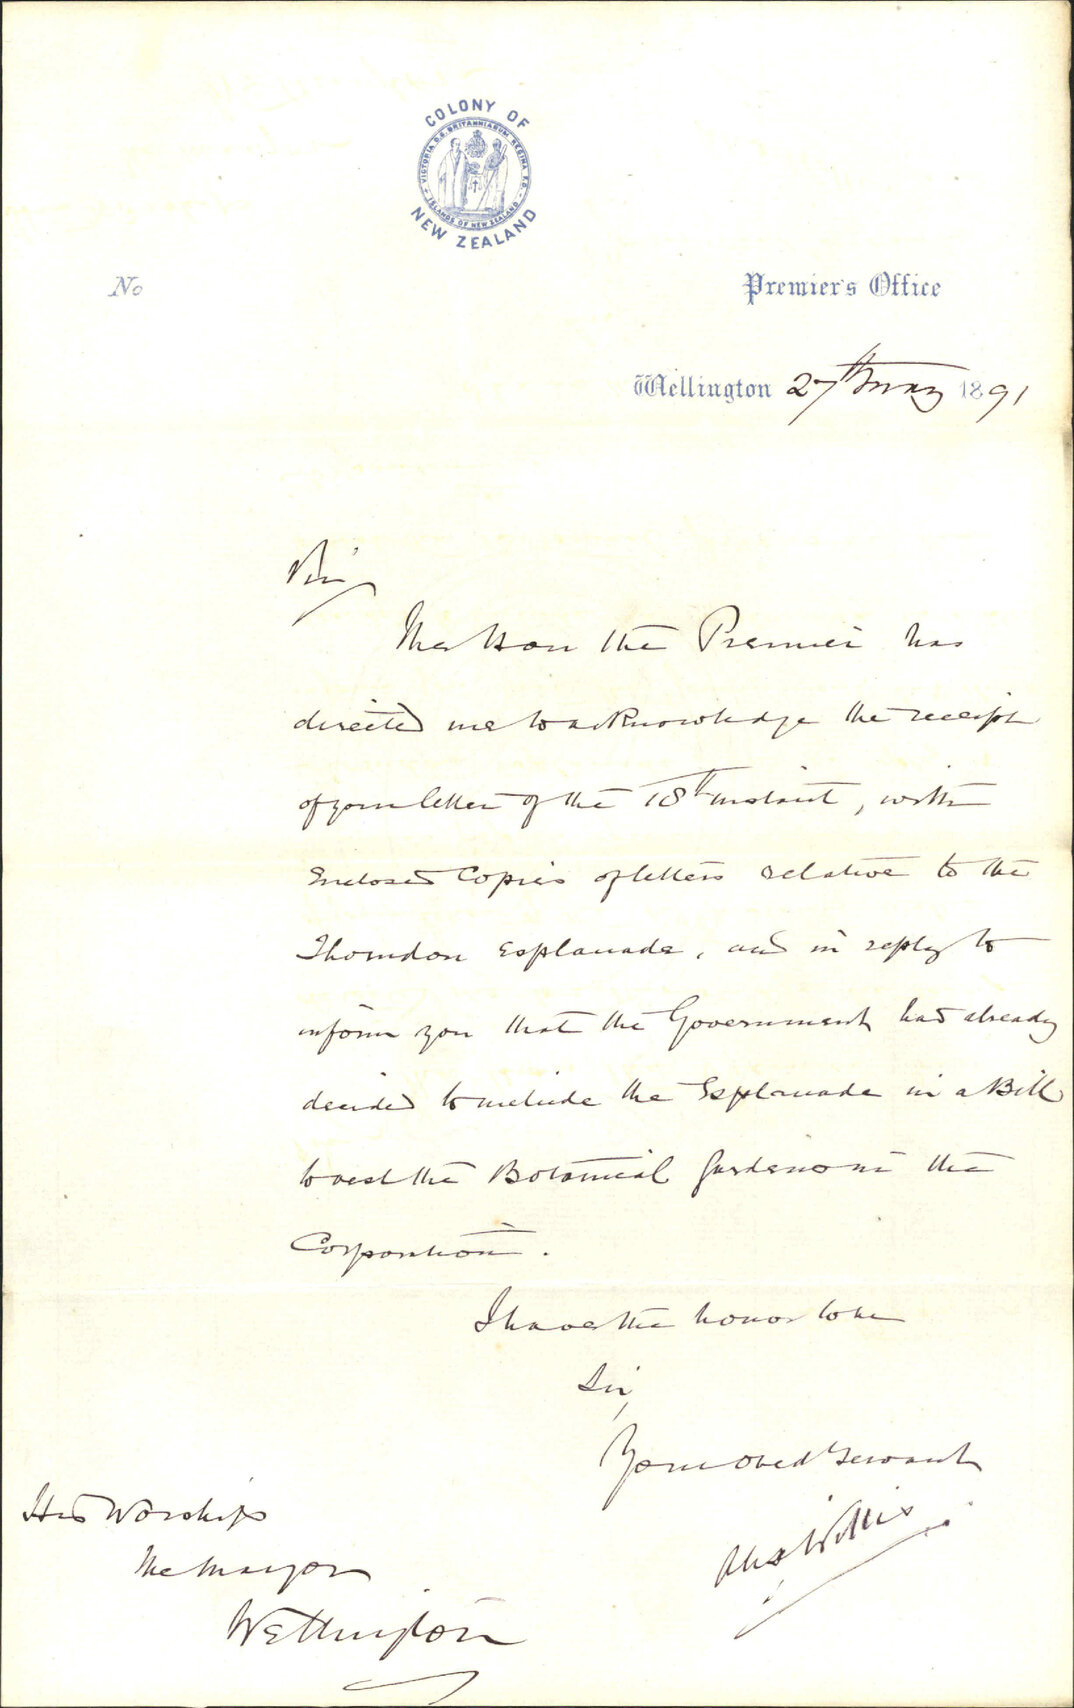 COLONY OF
VICTORIA D.G. BRITANNIARUM REGINA F.D.
ISLANDS OF NEW ZEALAND
NEW ZEALAND
No
Premier's Office
Wellington 27th May 1891
Sir,
The Hon the Premier has
directed me to acknowledge the receipt
of your letter of the 18th instant, with
enclosed copies of letters relative to the
Thorndon Esplanade, and in reply to
inform you that the Government had already
decided to include the Esplanade in a Bill
to vest the Botanical Gardens in the
Corporation.
I have the honor to be
Sir,
Your obed Servant
Alex Willis
His Worship
The Mayor
Wellington